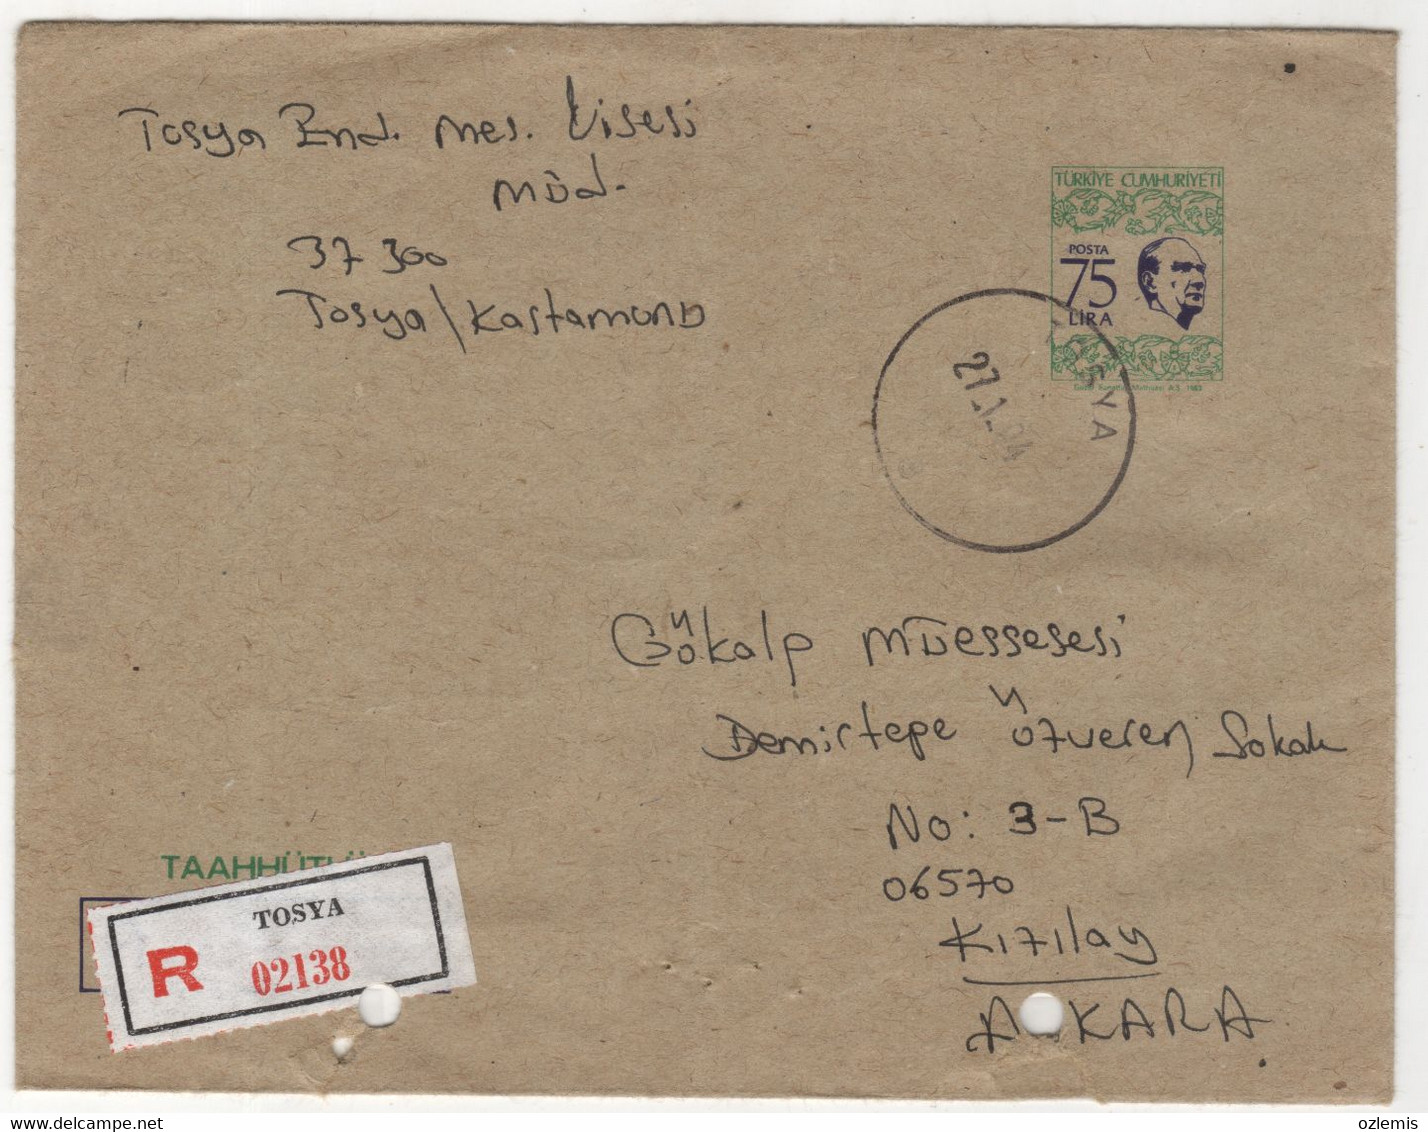 Tosya End. Mes. Lisesi
Müd.
37300
Tosya/Kastamonu
TÜRKİYE CUMHURİYETİ
POSTA
75
LİRA
TOSYA
27.1.94
Gökalp Müessesesi
Demirtepe Özveren Sokak
No: 3-B
06570
Kızılay
ANKARA
TAAHHÜTLÜ
TOSYA
R 02138
ozlemis